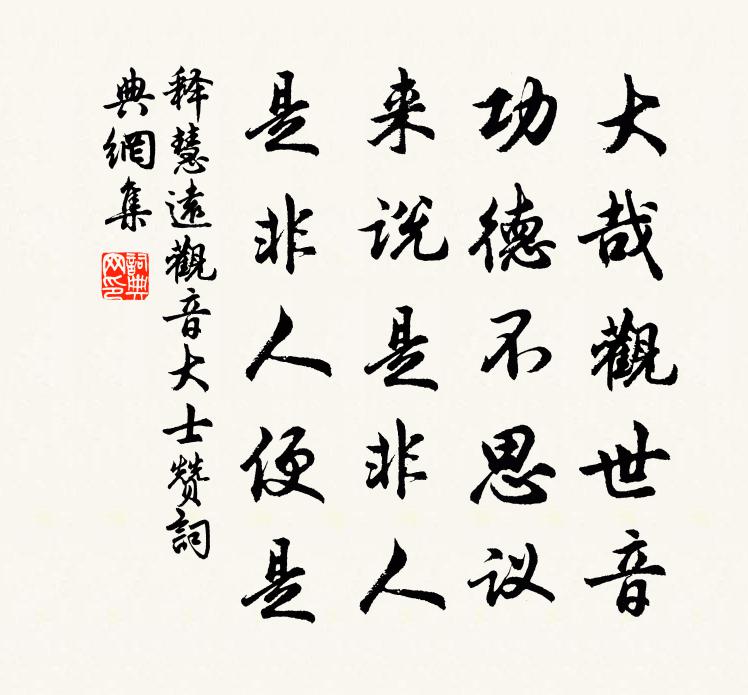 大哉觀世音
功德不思议
来说是非人
是非人便是
释慧遠觀音大士赞詞
典網集
詞典
网印